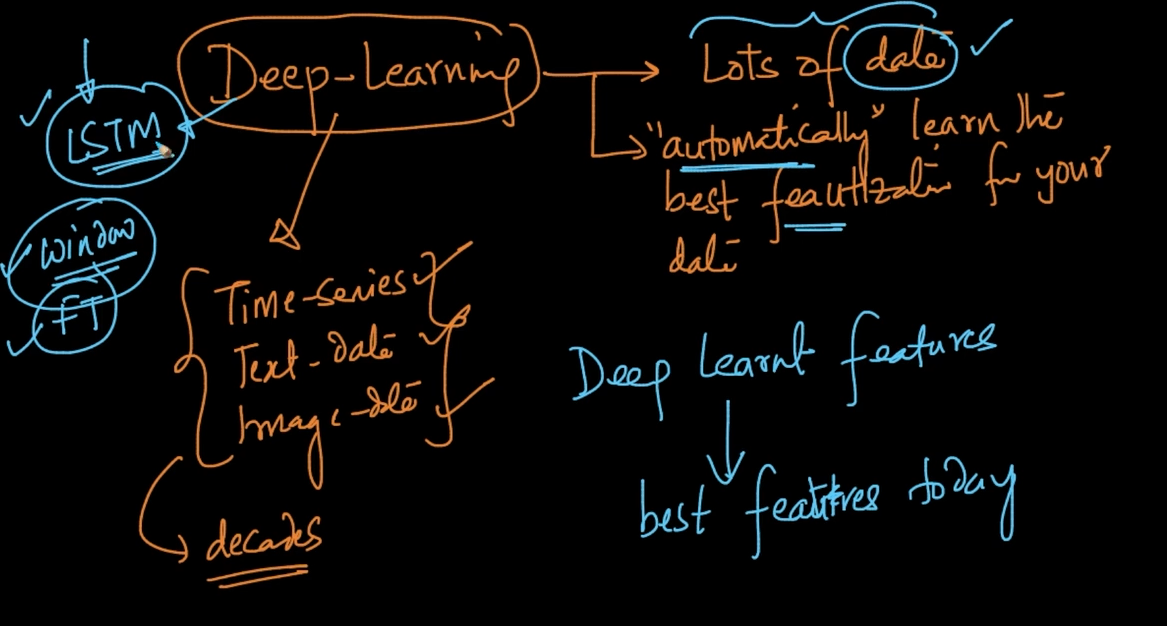 Deep-Learning
Lots of data
"automatically" learn the
best feautization for your
data
LSTM
window
FT
Time-series
Text-data
Image-data
decades
Deep Learnt features
best features today